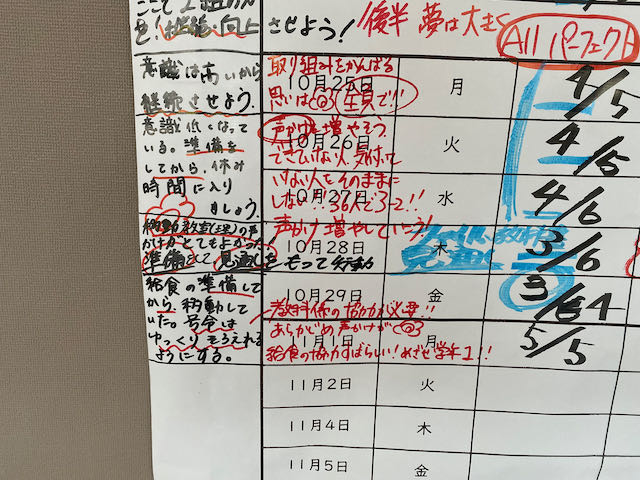 させよう!
後半 夢は大きく
All パーフェクト
意識は高いから
継続させよう。
取り組みをがんばる
10月25日
月
4/5
思いは
全員で!!
意識低くなって
いる。準備を
してから、休み
時間に入り
ましょう。
声かけを増やそう
10月26日
火
4/5
できていない人、気付いて
いない人をそのままに
10月27日
水
4/6
しない!!36人で3-2!!
声かけ増やしていこう!
移動教室(理)の声
かけがとてもよかった
準備をして見通しをもって行動
10月28日
木
見通し
3/6
給食の準備して
から、移動して
いた。号令は
ゆっくりそろえれる
ようにする。
10月29日
金
教科係の協力が必要!!
あらかじめ声かけが
11月1日
月
5/5
給食の協力すばらしい!めざせ学年1!!
11月2日
火
11月4日
木
11月5日
金